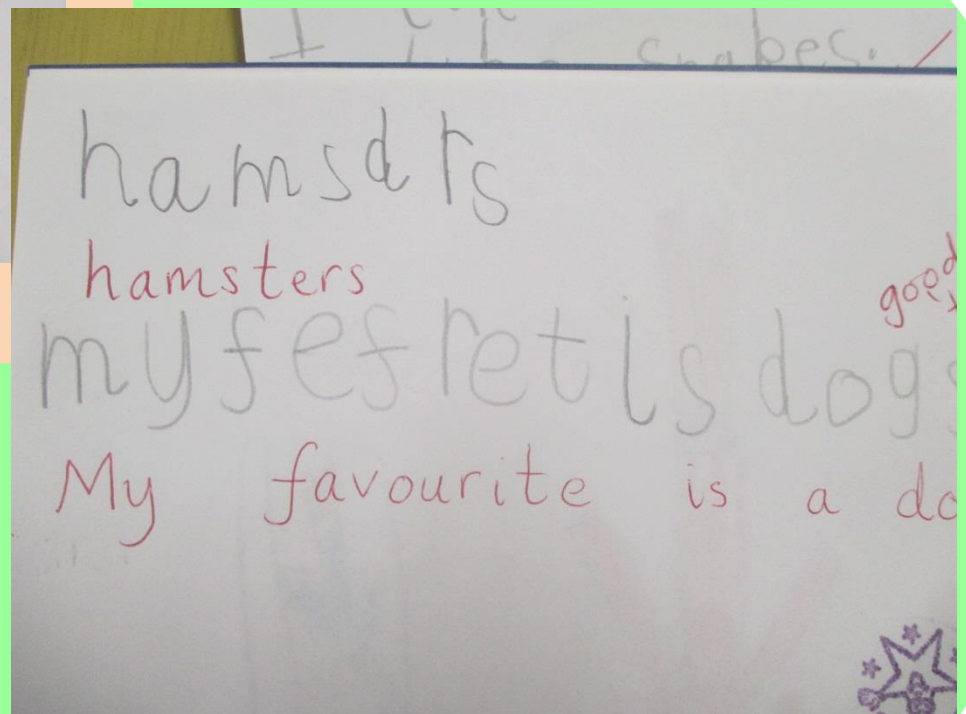 snakes.
hamsdrs
hamsters
good
myfefret is dogs
My favourite is a do